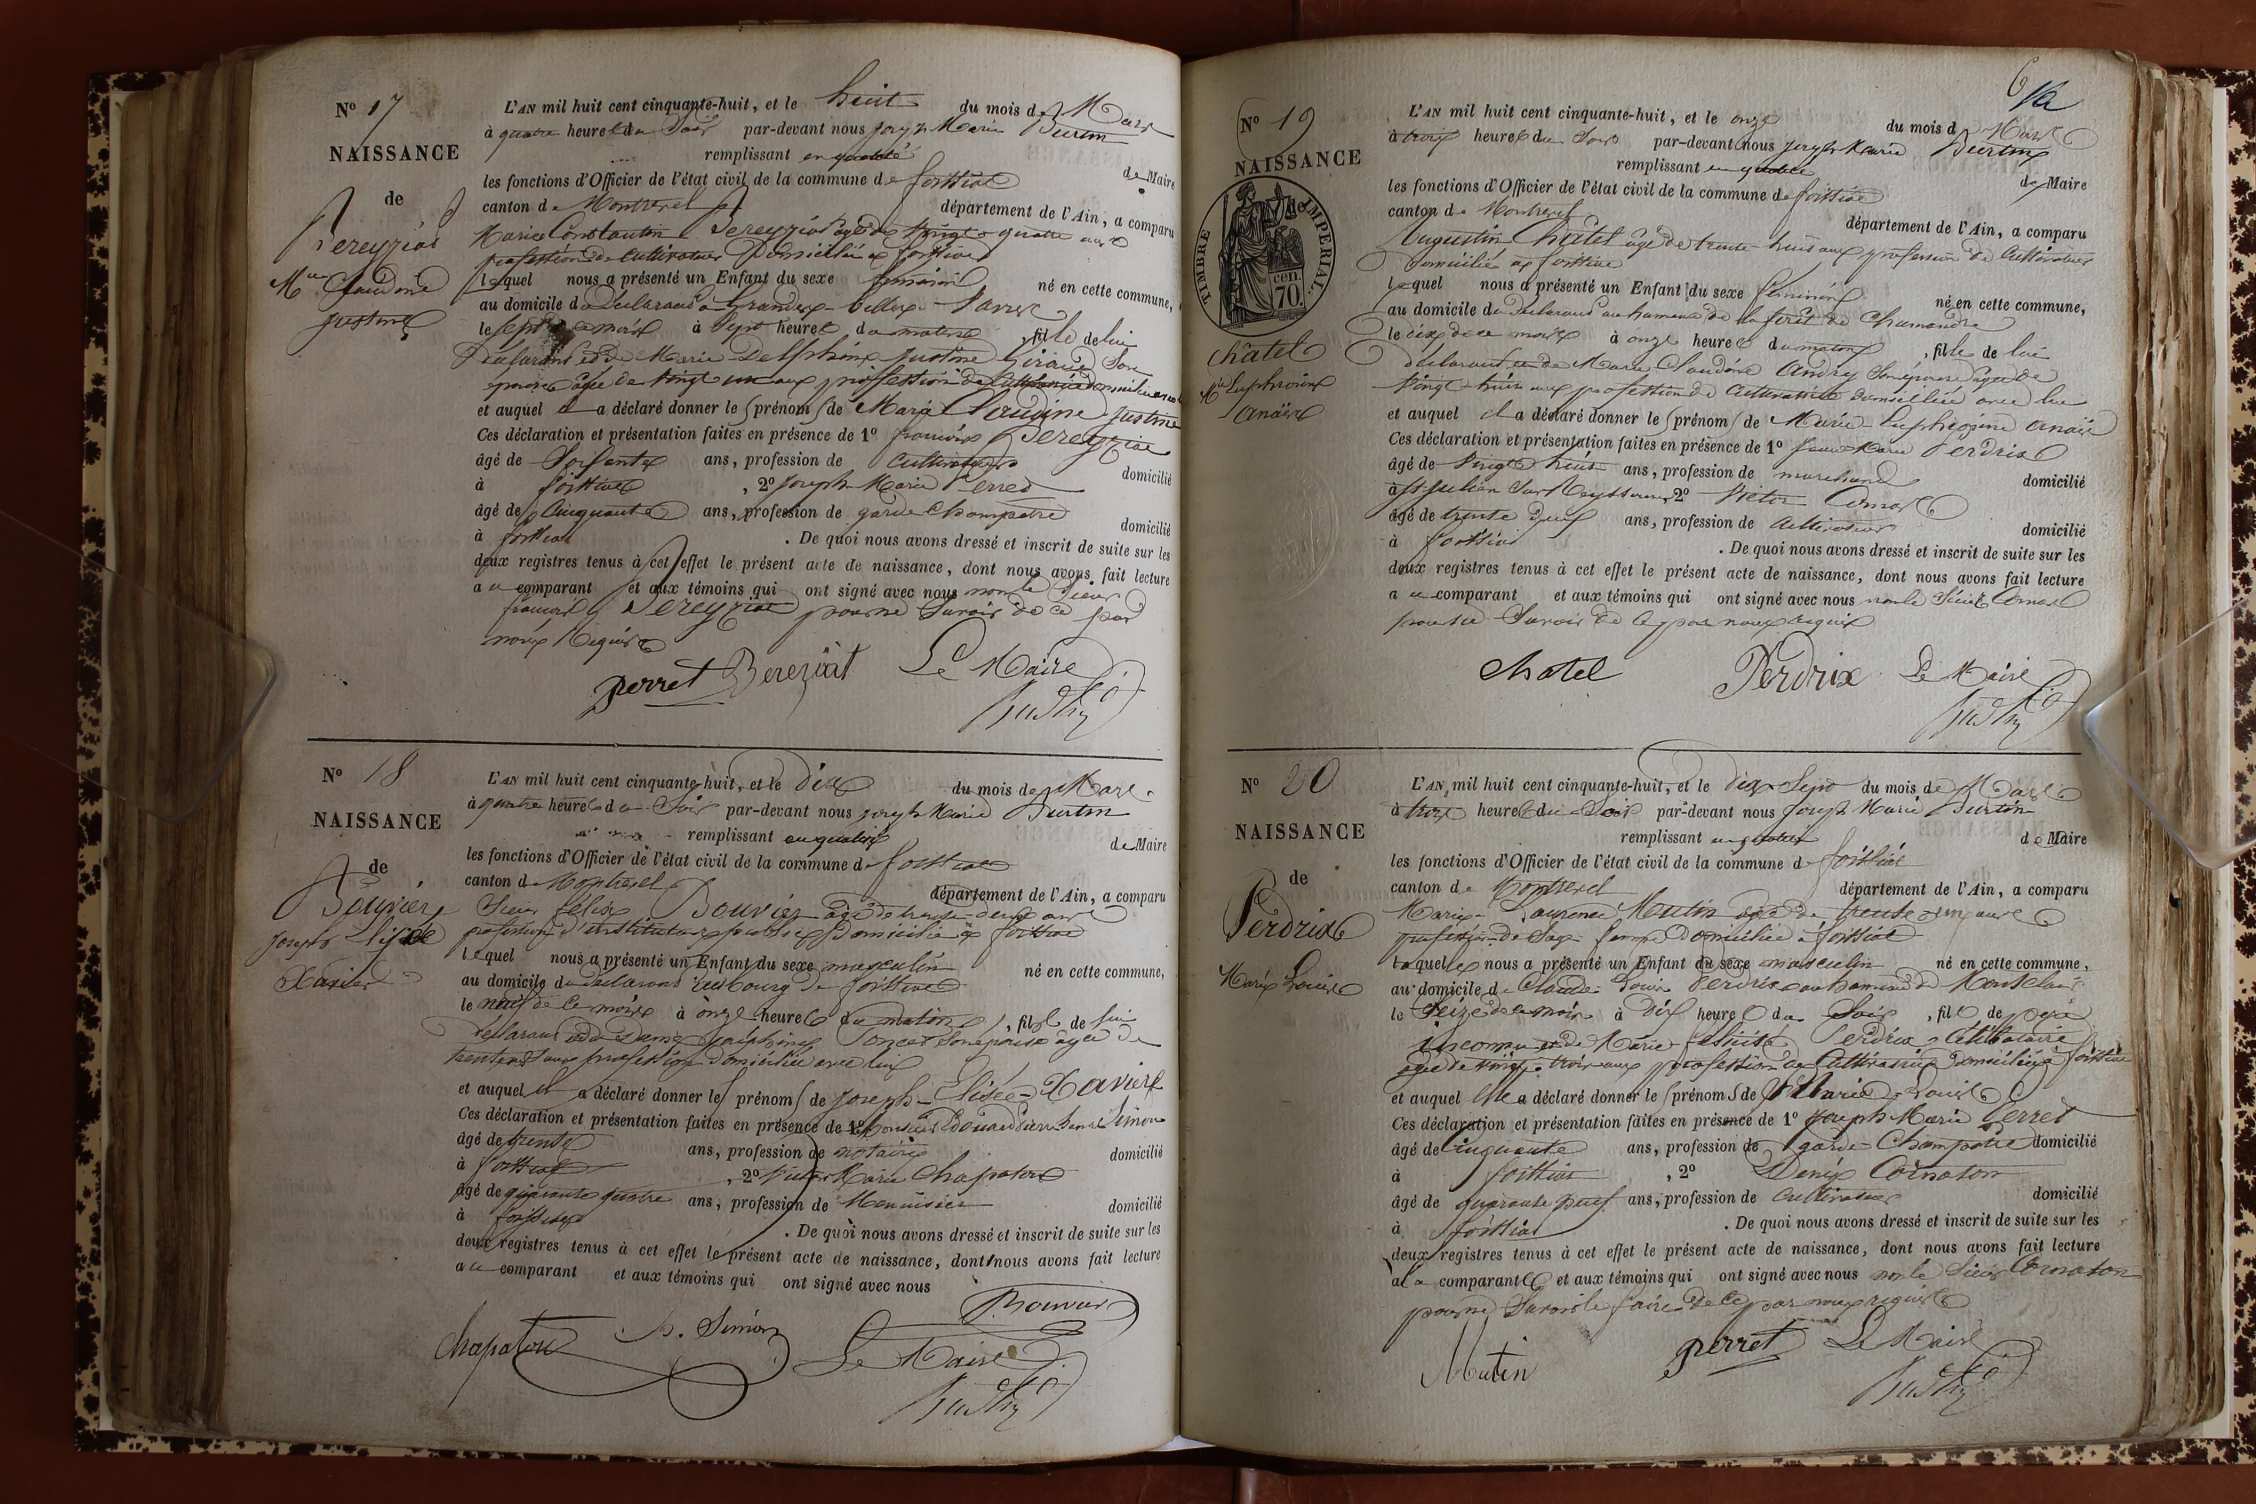 N° 17
NAISSANCE
de
Pereyziat
Mie Claudine
Justine
L'AN mil huit cent cinquante-huit, et le huit du mois de Mars
à quatre heures du Soir par-devant nous Joseph Marie Burtin
remplissant en qualité de Maire
les fonctions d'Officier de l'état civil de la commune de foissiat
canton de Montrevel département de l'Ain, a comparu
Marie Constantin Pereyziat âgé de vingt quatre ans
profession de Cultivateur Domicilié à foissiat
lequel nous a présenté un Enfant du sexe féminin né en cette commune,
au domicile du déclarant
le sept de ce mois à Sept heures du matin, fille de lui
déclarant et de Marie Delphine Justine Giraud Son
épouse âgée de vingt un ans profession de
et auquel il a déclaré donner les prénoms de Marie Claudine Justine
Ces déclaration et présentation faites en présence de 1° françois Pereyziat
âgé de Soixante ans, profession de Cultivateur domicilié
à foissiat, 2° Joseph Marie Perret
âgé de Cinquante ans, profession de garde Champêtre domicilié
à foissiat. De quoi nous avons dressé et inscrit de suite sur les
deux registres tenus à cet effet le présent acte de naissance, dont nous avons fait lecture
au comparant et aux témoins qui ont signé avec nous non le Sieur
françois Pereyziat pour ne Savoir de ce par
nous Requis
perret Bereziat Le Maire
N° 18
NAISSANCE
de
Bouvier
Joseph Elisée
Xavier
L'AN mil huit cent cinquante-huit, et le dix du mois de Mars
à quatre heures du Soir par-devant nous Joseph Marie Burtin
remplissant en qualité de Maire
les fonctions d'Officier de l'état civil de la commune de foissiat
canton de Montrevel département de l'Ain, a comparu
Sieur félix Bouvier âgé de trente deux ans
profession d'instituteur public Domicilié à foissiat
lequel nous a présenté un Enfant du sexe masculin né en cette commune,
au domicile du déclarant au bourg de foissiat
le neuf de ce mois à onze heures du matin, fils de lui
déclarant et de Dame Joséphine Poncet Son épouse âgée de
ans profession domiciliée avec lui
et auquel il a déclaré donner les prénoms de Joseph-Elisée-Xavier
Ces déclaration et présentation faites en présence de 1° Monsieur Edouard Simon
âgé de trente ans, profession de notaire domicilié
à foissiat, 2° Victor Marie Chapaton
âgé de quarante quatre ans, profession de Menuisier domicilié
à foissiat. De quoi nous avons dressé et inscrit de suite sur les
deux registres tenus à cet effet le présent acte de naissance, dont nous avons fait lecture
au comparant et aux témoins qui ont signé avec nous
Bouvier
Chapaton Simon Le Maire
N° 19
NAISSANCE
de
TIMBRE IMPERIAL.
70 cen.
Châtel
Mie Euphrosine
Anaïs
L'AN mil huit cent cinquante-huit, et le onze du mois de Mars
à trois heures du Soir par-devant nous Joseph Marie Burtin
remplissant en qualité de Maire
les fonctions d'Officier de l'état civil de la commune de foissiat
canton de Montrevel département de l'Ain, a comparu
Augustin Châtel âgé de trente-huit ans profession de Cultivateur
Domicilié à foissiat
lequel nous a présenté un Enfant du sexe féminin né en cette commune,
au domicile du déclarant au hameau de la forêt de Chamandre
le dix de ce mois à onze heures du matin, fille de lui
déclarant et de Marie Claudine Andrey Son épouse âgée de
vingt-huit ans profession de cultivatrice domiciliée avec lui
et auquel il a déclaré donner les prénoms de Marie Euphrosine Anaïs
Ces déclaration et présentation faites en présence de 1° Jean Marie Perdrix
âgé de vingt huit ans, profession de marchand domicilié
à St Julien Sur Reyssouze, 2° Victor Comas
âgé de trente neuf ans, profession de Cultivateur domicilié
à foissiat. De quoi nous avons dressé et inscrit de suite sur les
deux registres tenus à cet effet le présent acte de naissance, dont nous avons fait lecture
au comparant et aux témoins qui ont signé avec nous non le Sieur Comas
pour ne Savoir de ce par nous requis
Chatel Perdrix Le Maire
N° 20
NAISSANCE
de
Perdrix
Marie Louis
L'AN mil huit cent cinquante-huit, et le dix Sept du mois de Mars
à trois heures du Soir par-devant nous Joseph Marie Burtin
remplissant en qualité de Maire
les fonctions d'Officier de l'état civil de la commune de foissiat
canton de Montrevel département de l'Ain, a comparu
Marie Laurence Mutin âgée de trente un ans
profession de Sage femme Domiciliée à foissiat
laquelle nous a présenté un Enfant du sexe masculin né en cette commune,
au domicile de Claude Louis Perdrix au hameau de
le Seize de ce mois à Dix heures du Soir, fils de père
inconnu et de Marie félicité Perdrix Célibataire
âgée de vingt-trois ans profession de Cultivatrice Domiciliée à foissiat
et auquel elle a déclaré donner les prénoms de Marie Louis
Ces déclaration et présentation faites en présence de 1° Joseph Marie Perret
âgé de Cinquante ans, profession de garde Champêtre domicilié
à foissiat, 2° Denis Cornaton
âgé de quarante neuf ans, profession de Cultivateur domicilié
à foissiat. De quoi nous avons dressé et inscrit de suite sur les
deux registres tenus à cet effet le présent acte de naissance, dont nous avons fait lecture
à la comparante et aux témoins qui ont signé avec nous non le Sieur Cornaton
pour ne Savoir le faire de ce par nous requis
Mutin perret Le Maire